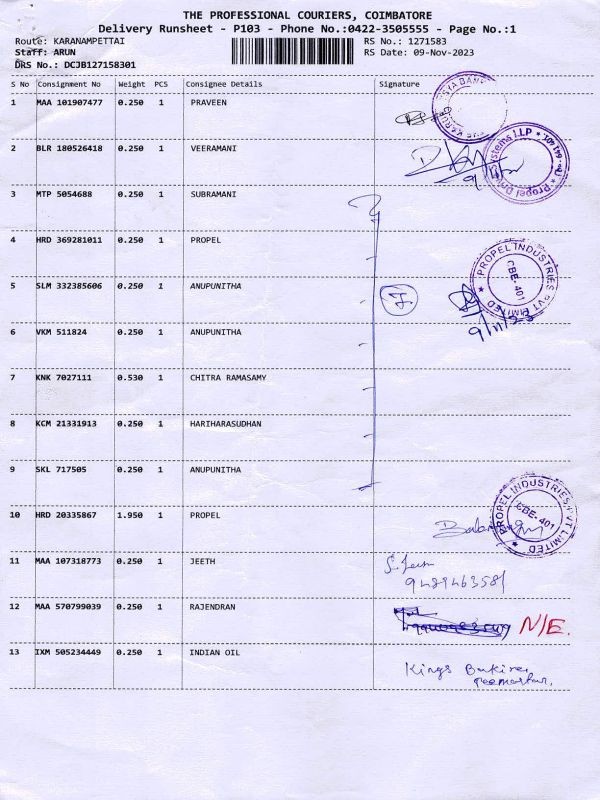 THE PROFESSIONAL COURIERS, COIMBATORE
Delivery Runsheet - P103 - Phone No.:0422-3505555 - Page No.:1
Route: KARANAMPETTAI RS No.: 1271583
Staff: ARUN RS Date: 09-Nov-2023
DRS No.: DCJB127158301
S No Consignment No Weight PCS Consignee Details Signature
1 MAA 101907477 0.250 1 PRAVEEN
2 BLR 180526418 0.250 1 VEERAMANI
3 MTP 5054688 0.250 1 SUBRAMANI
4 HRD 369281011 0.250 1 PROPEL
PROPEL INDUSTRIES PVT LIMITED
CBE-401
9/11/23
5 SLM 332385606 0.250 1 ANUPUNITHA
6 VKM 511824 0.250 1 ANUPUNITHA
7 KNK 7027111 0.530 1 CHITRA RAMASAMY
8 KCM 21331913 0.250 1 HARIHARASUDHAN
9 SKL 717505 0.250 1 ANUPUNITHA
10 HRD 20335867 1.950 1 PROPEL
PROPEL INDUSTRIES PVT LIMITED
CBE-401
11 MAA 107318773 0.250 1 JEETH
9489463581
12 MAA 570799039 0.250 1 RAJENDRAN N/E.
13 IXM 505234449 0.250 1 INDIAN OIL
Kings